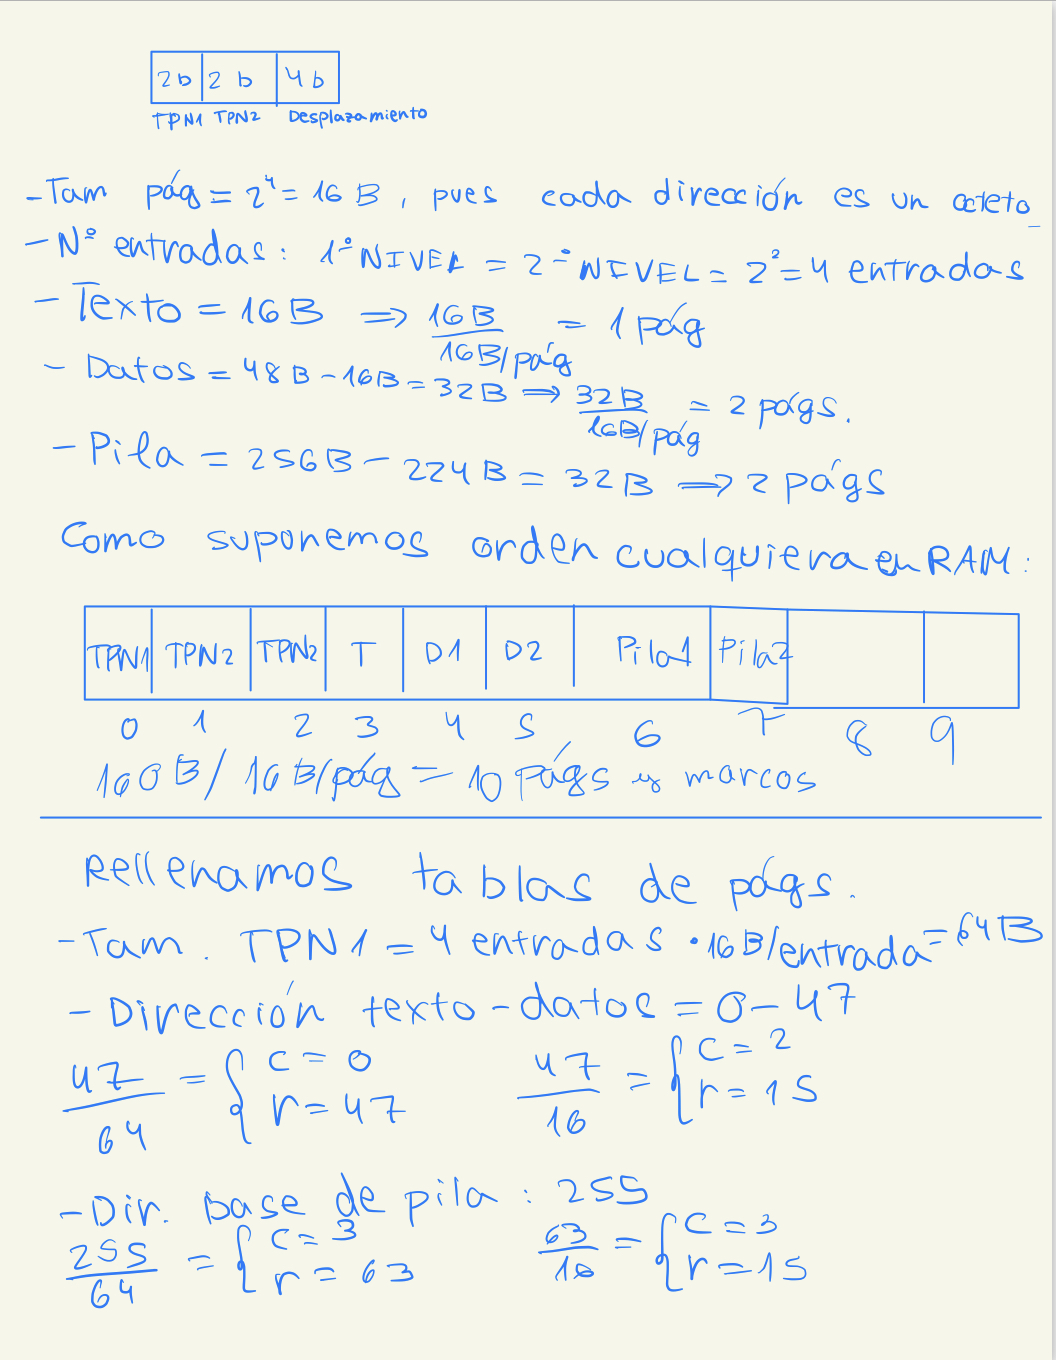 2b 2 b 4 b
TPN1 TPN2 Desplazamiento
- Tam pág = 2⁴ = 16 B, pues cada dirección es un octeto
- Nº entradas: 1º NIVEL = 2º NIVEL = 2² = 4 entradas
- Texto = 16B ⇒ 16B / 16B/pág = 1 pág
- Datos = 48B - 16B = 32B ⇒ 32B / 16B/pág = 2 págs.
- Pila = 256B - 224B = 32B ⇒ 2 págs
Como suponemos orden cualquiera en RAM:
TPN1 TPN2 TPN2 T D1 D2 Pila1 Pila2
0 1 2 3 4 5 6 7 8 9
160B / 16B/pág = 10 págs y marcos
Rellenamos tablas de págs.
- Tam. TPN1 = 4 entradas · 16B/entrada = 64B
- Dirección texto-datos = 0 - 47
47/64 = { c = 0 r = 47 47/16 = { c = 2 r = 15
- Dir. base de pila: 255
255/64 = { c = 3 r = 63 63/16 = { c = 3 r = 15